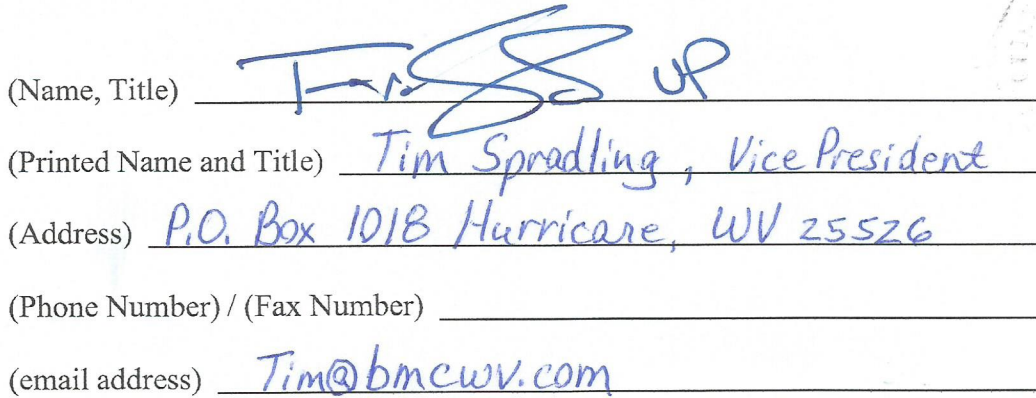 (Name, Title) VP
(Printed Name and Title) Tim Spradling, Vice President
(Address) P.O. Box 1018 Hurricane, WV 25526
(Phone Number) / (Fax Number)
(email address) Tim@bmcwv.com